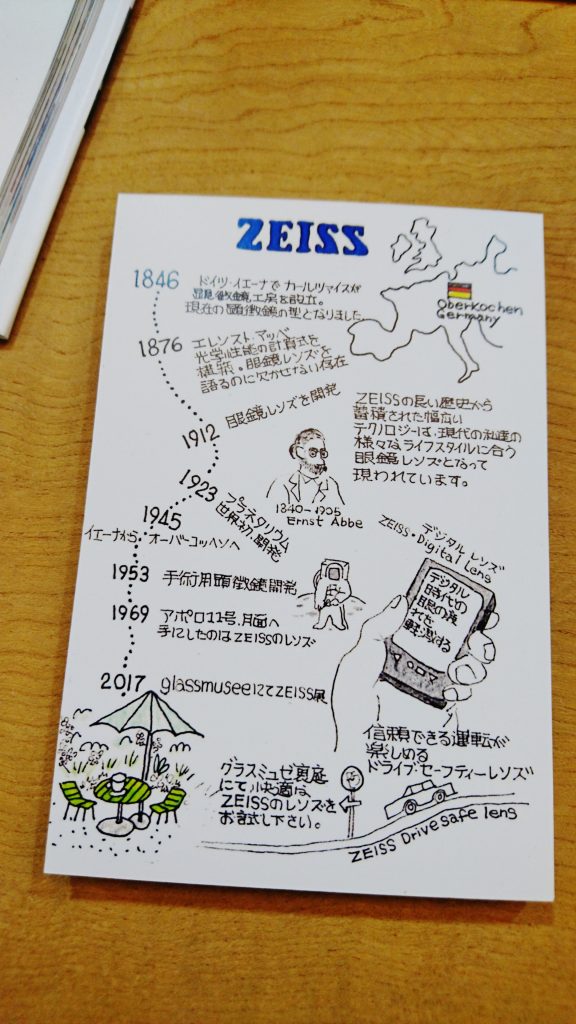 ZEISS
1846
ドイツ・イエーナでカールツァイスが
顕微鏡工房を設立。
現在の顕微鏡の型となりました
Oberkochen
Germany
1876
エレンスト.アッベ
光学性能の計算式を
構築。眼鏡レンズを
語るのに欠かせない存在
1912
眼鏡レンズを開発
ZEISSの長い歴史から
蓄積された幅広い
テクノロジーは、現代の私達の
様々なライフスタイルに合う
眼鏡レンズとなって
現われています。
1840-1905
Ernst Abbe
1923
プラネタリウム
世界初、開発
1945
イエーナから、オーバーコッヘンへ
デジタル レンズ
ZEISS・Digital Lens
デジタル
時代の
眼の疲
れを
軽減する
1953
手術用顕微鏡開発
1969
アポロ11号、月面へ
手にしたのはZEISSのレンズ
2017
glassmuseeにてZEISS展
信頼できる運転が
楽しめる
ドライブ・セーフティーレンズ
グラスミュゼ裏庭
にて、快適な
ZEISSのレンズを
お試し下さい。
ZEISS Drive safe lens